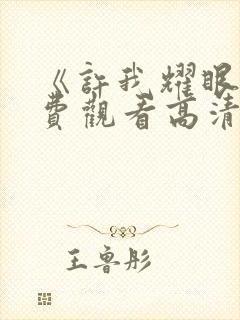 《許我耀眼
費觀看高清
王魯彤